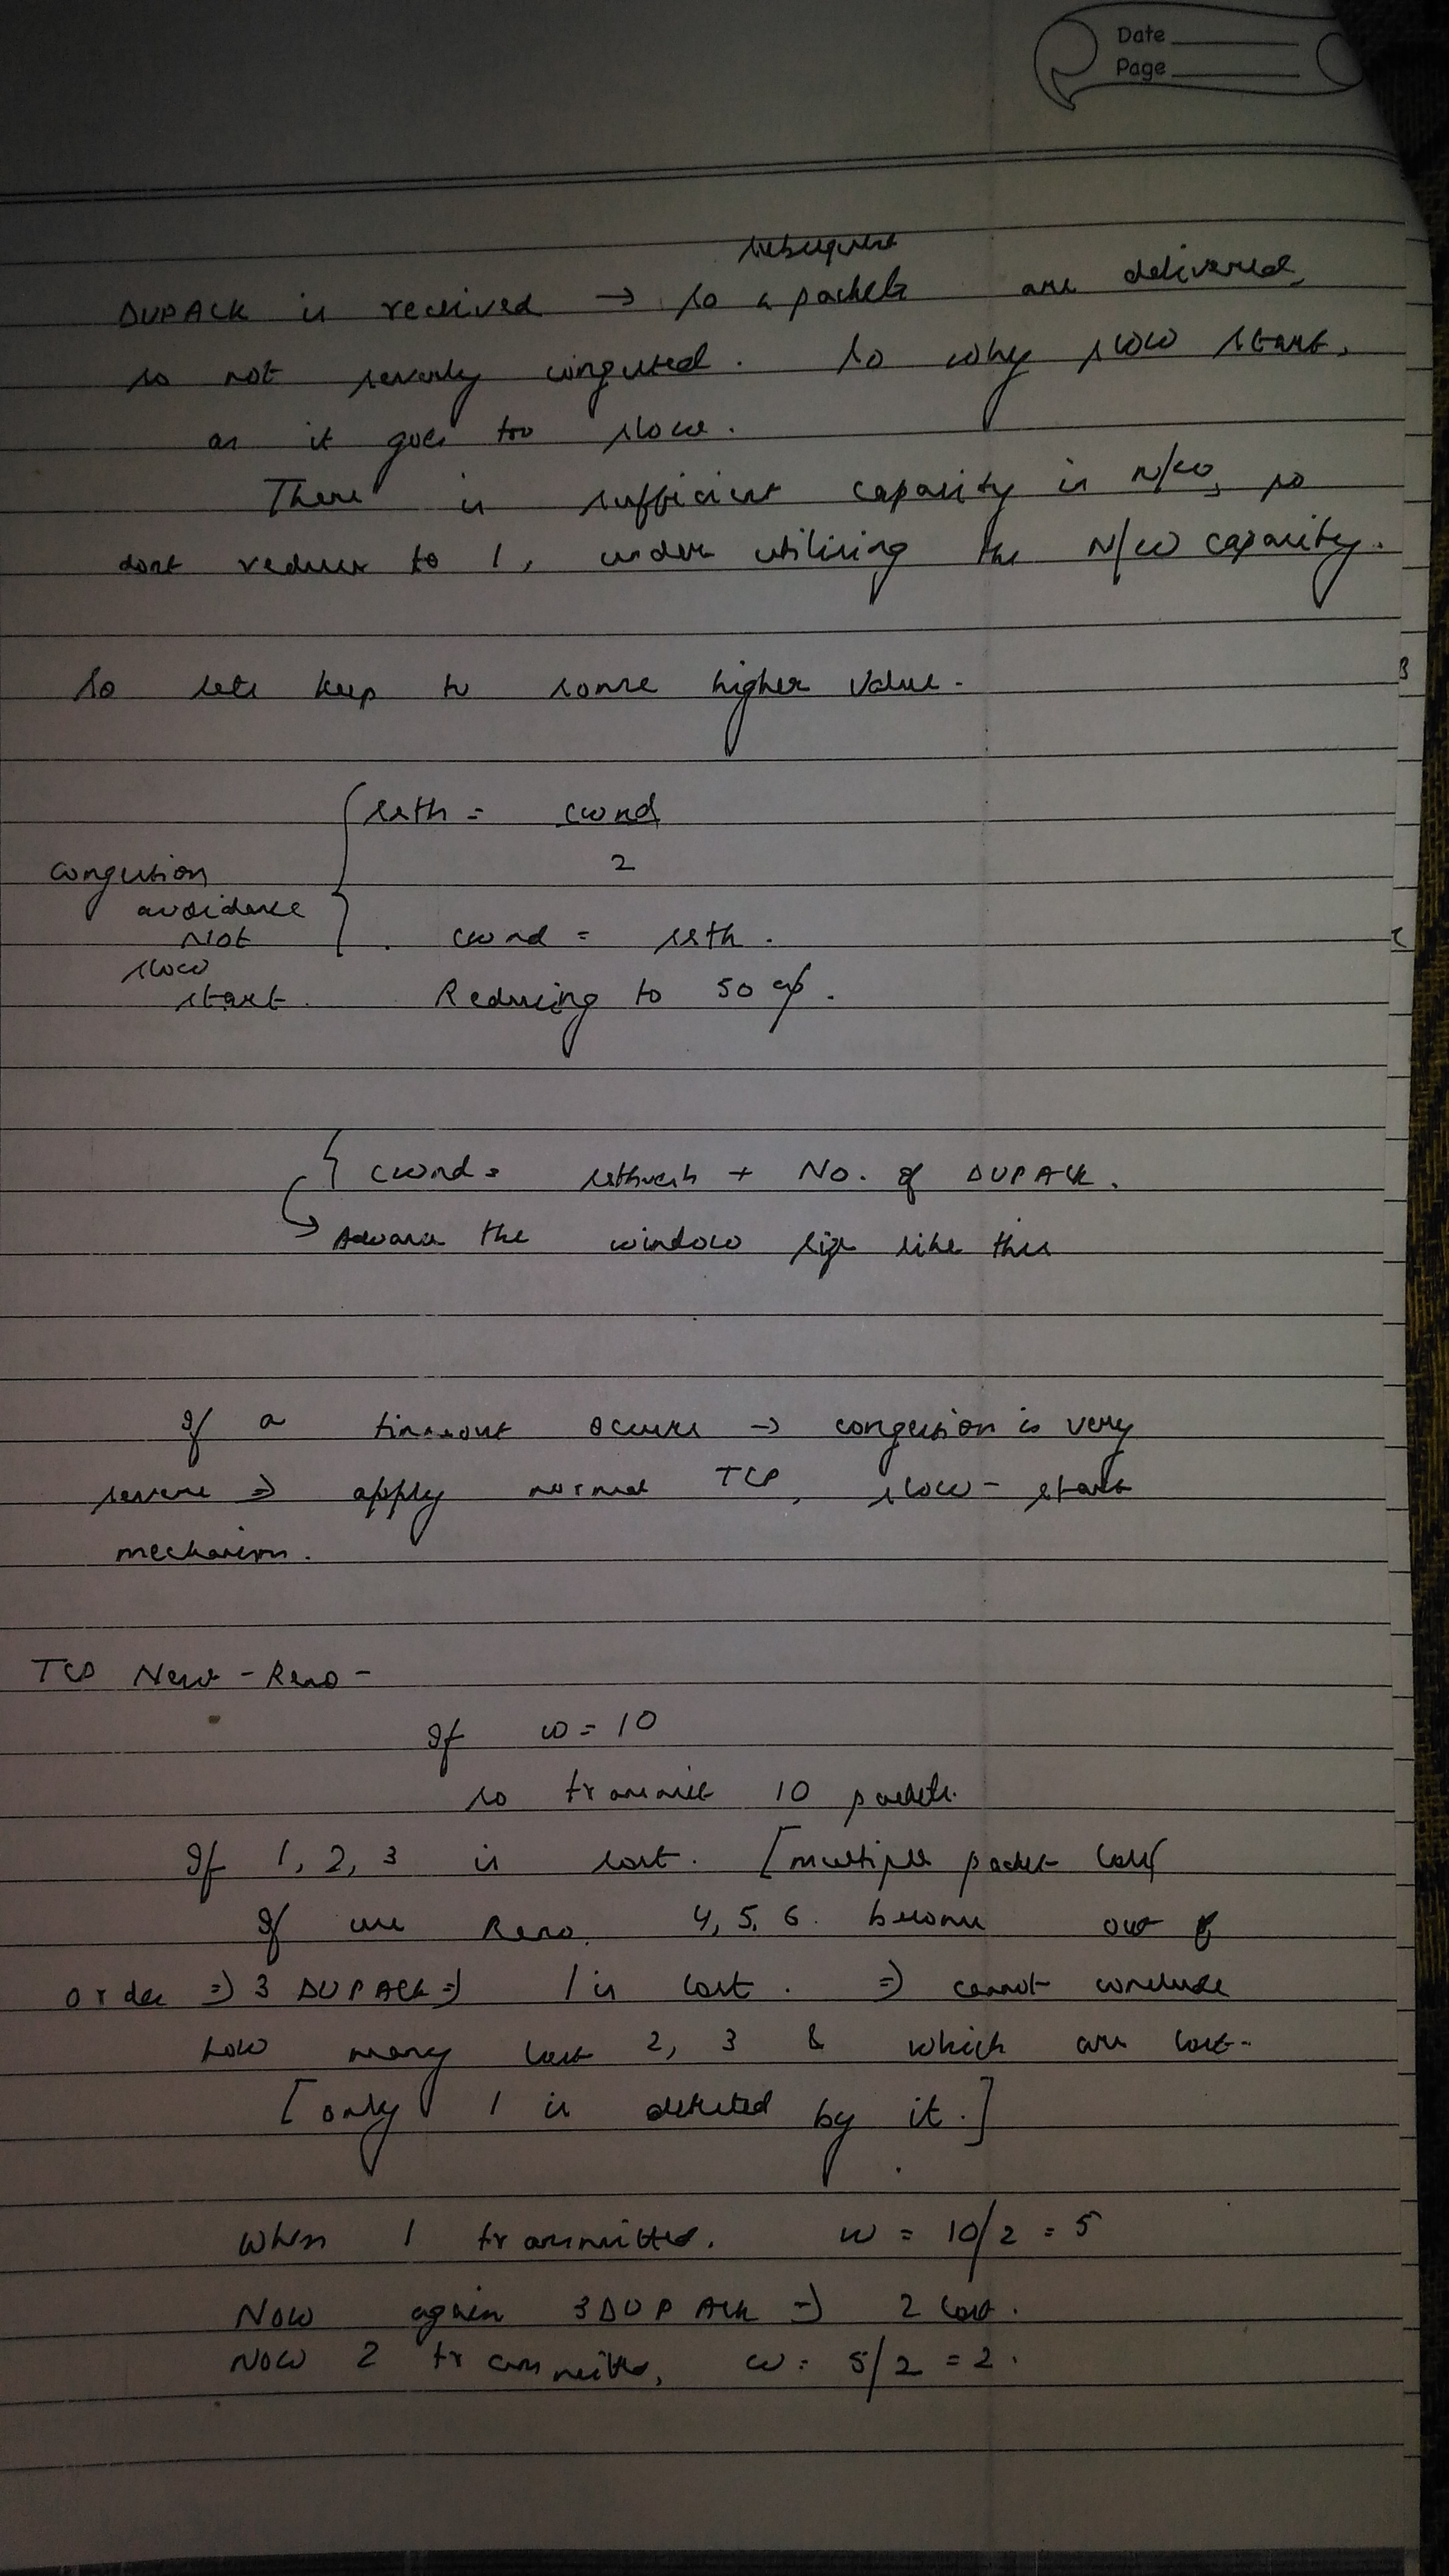 Date
Page
subsequent
DUPACK is received → so packets are delivered,
so not severly congested. So why slow start,
as it goes too slow.
There is sufficient capacity in N/W, so
dont reduce to 1, under utilising the N/W capacity.
So lets keep to some higher value.
ssth = cwnd
2
congestion
avoidance
Not
slow
start.
cwnd = ssth.
Reducing to 50 %.
{ cwnd = ssthresh + No. of DUPACK.
Advance the window like this
If a timeout occurs → congestion is very
severe ⇒ apply normal TCP, slow-start
mechanism.
TCP New-Reno-
If w=10
so transmit 10 packets.
If 1, 2, 3 is lost. [multiple packet loss]
If use Reno, 4, 5, 6. become out of
order ⇒ 3 DUPACK ⇒ 1 is lost. ⇒ cannot conclude
how many lost 2, 3 & which are lost.
[only 1 is detected by it.]
When 1 transmitted. w = 10/2 = 5
Now again 3DUPACK ⇒ 2 lost.
Now 2 transmitted, w = 5/2 = 2.